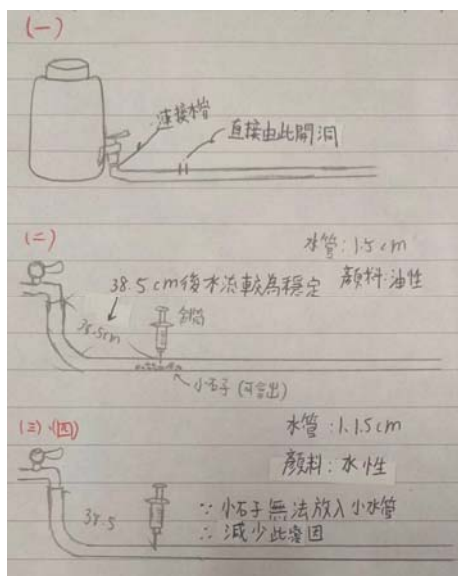 (一)
連接水管
直接由此開洞
(二)
水管:1.5cm
顏料:油性
38.5cm後水流較為穩定
38.5cm
針筒
小石子(可省出)
(三)、(四)
水管:1.1.5cm
顏料:水性
38.5
∵小石子無法放入小水管
∴減少此變因